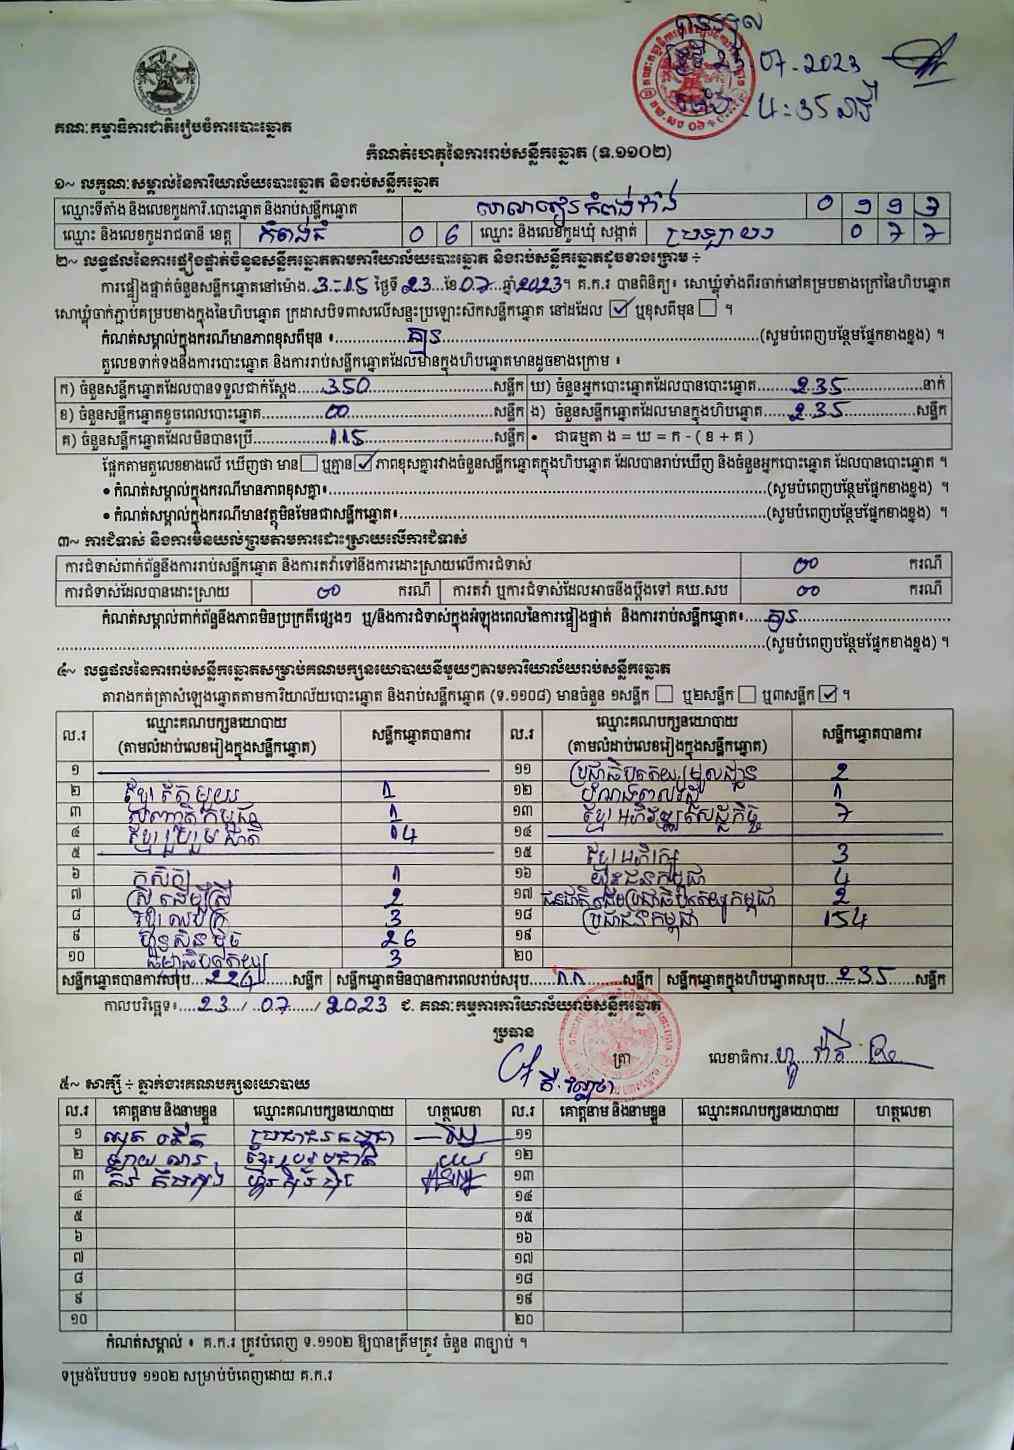 បានទទួល
ថ្ងៃទី 23.07.2023
ម៉ោង 4:35 នាទី
គណៈកម្មាធិការជាតិរៀបចំការបោះឆ្នោត
កំណត់ហេតុនៃការរាប់សន្លឹកឆ្នោត (ទ.១១០២)
១~ លក្ខណៈសម្គាល់នៃការិយាល័យបោះឆ្នោត និងរាប់សន្លឹកឆ្នោត
ឈ្មោះទីតាំង និងលេខកូដការិ.បោះឆ្នោត និងរាប់សន្លឹកឆ្នោត សាលារៀន កំពង់ 0
ឈ្មោះ និងលេខកូដរាជធានី ខេត្ត កំពង់ធំ 0 6 ឈ្មោះ និងលេខកូដឃុំ សង្កាត់ ប្រឡាយ 0 ៧ ៧
២~ លទ្ធផលនៃការផ្ទៀងផ្ទាត់ចំនួនសន្លឹកឆ្នោតតាមការិយាល័យបោះឆ្នោត និងរាប់សន្លឹកឆ្នោតដូចខាងក្រោម ÷
ការផ្ទៀងផ្ទាត់ចំនួនសន្លឹកឆ្នោតនៅម៉ោង 3-15 ថ្ងៃទី 23 ខែ 07 ឆ្នាំ 2023។ គ.ក.រ បានពិនិត្យ៖ សោឃ្លុំទាំងពីរចាក់នៅគម្របខាងក្រៅនៃហិបឆ្នោត
សោឃ្លុំចាក់ភ្ជាប់គម្របខាងក្នុងនៃហិបឆ្នោត ក្រដាសបិទពាសលើសន្ទះប្រឡោះស៊កសន្លឹកឆ្នោត នៅដដែល ☑ ឬខុសពីមុន ☐ ។
កំណត់សម្គាល់ក្នុងករណីមានភាពខុសពីមុន ៖ គ្មាន (សូមបំពេញបន្ថែមផ្នែកខាងខ្នង) ។
តួលេខទាក់ទងនឹងការបោះឆ្នោត និងការរាប់សន្លឹកឆ្នោតដែលមានក្នុងហិបឆ្នោតមានដូចខាងក្រោម ៖
ក) ចំនួនសន្លឹកឆ្នោតដែលបានទទួលជាក់ស្តែង 350 សន្លឹក ឃ) ចំនួនអ្នកបោះឆ្នោតដែលបានបោះឆ្នោត 235 នាក់
ខ) ចំនួនសន្លឹកឆ្នោតខូចពេលបោះឆ្នោត 00 សន្លឹក ង) ចំនួនសន្លឹកឆ្នោតដែលមានក្នុងហិបឆ្នោត 235 សន្លឹក
គ) ចំនួនសន្លឹកឆ្នោតដែលមិនបានប្រើ 115 សន្លឹក • ជាធម្មតា ង = ឃ = ក - ( ខ + គ )
ផ្អែកតាមតួលេខខាងលើ ឃើញថា មាន ☐ ឬគ្មាន ☑ ភាពខុសគ្នារវាងចំនួនសន្លឹកឆ្នោតក្នុងហិបឆ្នោត ដែលបានរាប់ឃើញ និងចំនួនអ្នកបោះឆ្នោត ដែលបានបោះឆ្នោត ។
• កំណត់សម្គាល់ក្នុងករណីមានភាពខុសគ្នា៖ (សូមបំពេញបន្ថែមផ្នែកខាងខ្នង) ។
• កំណត់សម្គាល់ក្នុងករណីមានវត្ថុមិនមែនជាសន្លឹកឆ្នោត៖ (សូមបំពេញបន្ថែមផ្នែកខាងខ្នង) ។
៣~ ការជំទាស់ និងការមិនយល់ព្រមតាមការដោះស្រាយលើការជំទាស់
ការជំទាស់ពាក់ព័ន្ធនឹងការរាប់សន្លឹកឆ្នោត និងការតវ៉ាទៅនឹងការដោះស្រាយលើការជំទាស់ 00 ករណី
ការជំទាស់ដែលបានដោះស្រាយ 00 ករណី ការតវ៉ា ឬការជំទាស់ដែលអាចនឹងប្តឹងទៅ គឃ.សប 00 ករណី
កំណត់សម្គាល់ពាក់ព័ន្ធនឹងភាពមិនប្រក្រតីផ្សេងៗ ឬ/និងការជំទាស់ក្នុងអំឡុងពេលនៃការផ្ទៀងផ្ទាត់ និងការរាប់សន្លឹកឆ្នោត៖ គ្មាន
(សូមបំពេញបន្ថែមផ្នែកខាងខ្នង) ។
៤~ លទ្ធផលនៃការរាប់សន្លឹកឆ្នោតសម្រាប់គណបក្សនយោបាយនីមួយៗតាមការិយាល័យរាប់សន្លឹកឆ្នោត
តារាងកត់ត្រាសំឡេងឆ្នោតតាមការិយាល័យបោះឆ្នោត និងរាប់សន្លឹកឆ្នោត (ទ.១១០៨) មានចំនួន ១សន្លឹក ☐ ឬ២សន្លឹក ☐ ឬ៣សន្លឹក ☑ ។
ល.រ ឈ្មោះគណបក្សនយោបាយ (តាមលំដាប់លេខរៀងក្នុងសន្លឹកឆ្នោត) សន្លឹកឆ្នោតបានការ ល.រ ឈ្មោះគណបក្សនយោបាយ (តាមលំដាប់លេខរៀងក្នុងសន្លឹកឆ្នោត) សន្លឹកឆ្នោតបានការ
១ ១១ ប្រជាធិបតេយ្យមូលដ្ឋាន 2
២ ខ្មែរតែមួយ 1 ១២ បំណងពលរដ្ឋ 1
៣ សញ្ជាតិកម្ពុជា 1 ១៣ ខ្មែរអភិវឌ្ឍន៍សេដ្ឋកិច្ច 7
៤ ខ្មែររួបរួមជាតិ 14 ១៤
៥ ១៥ ខ្មែរអភិរក្ស 3
៦ កសិករ 1 ១៦ យុវជនកម្ពុជា 4
៧ ស្រីដើម្បីស្រី 2 ១៧ ជនជាតិដើមប្រជាធិបតេយ្យកម្ពុជា 2
៨ 3 ១៨ ប្រជាជនកម្ពុជា 154
៩ ហ៊្វុនស៊ិនប៉ិច 26 ១៩
១០ ធម្មាធិបតេយ្យ 3 ២០
សន្លឹកឆ្នោតបានការសរុប 224 សន្លឹក សន្លឹកឆ្នោតមិនបានការពេលរាប់សរុប 11 សន្លឹក សន្លឹកឆ្នោតក្នុងហិបឆ្នោតសរុប 235 សន្លឹក
កាលបរិច្ឆេទ៖ 23 / 07 / 2023 ជ. គណៈកម្មការការិយាល័យរាប់សន្លឹកឆ្នោត
ប្រធាន ត្រា លេខាធិការ
៥~ សាក្សី ÷ ភ្នាក់ងារគណបក្សនយោបាយ
ល.រ គោត្តនាម និងនាមខ្លួន ឈ្មោះគណបក្សនយោបាយ ហត្ថលេខា ល.រ គោត្តនាម និងនាមខ្លួន ឈ្មោះគណបក្សនយោបាយ ហត្ថលេខា
១ ប្រជាជនកម្ពុជា ១១
២ ខ្មែររួបរួមជាតិ ១២
៣ ហ៊្វុនស៊ិនប៉ិច ១៣
៤ ១៤
៥ ១៥
៦ ១៦
៧ ១៧
៨ ១៨
៩ ១៩
១០ ២០
កំណត់សម្គាល់ ៖ គ.ក.រ ត្រូវបំពេញ ទ.១១០២ ឱ្យបានត្រឹមត្រូវ ចំនួន ៣ច្បាប់ ។
ទម្រង់បែបបទ ១១០២ សម្រាប់បំពេញដោយ គ.ក.រ